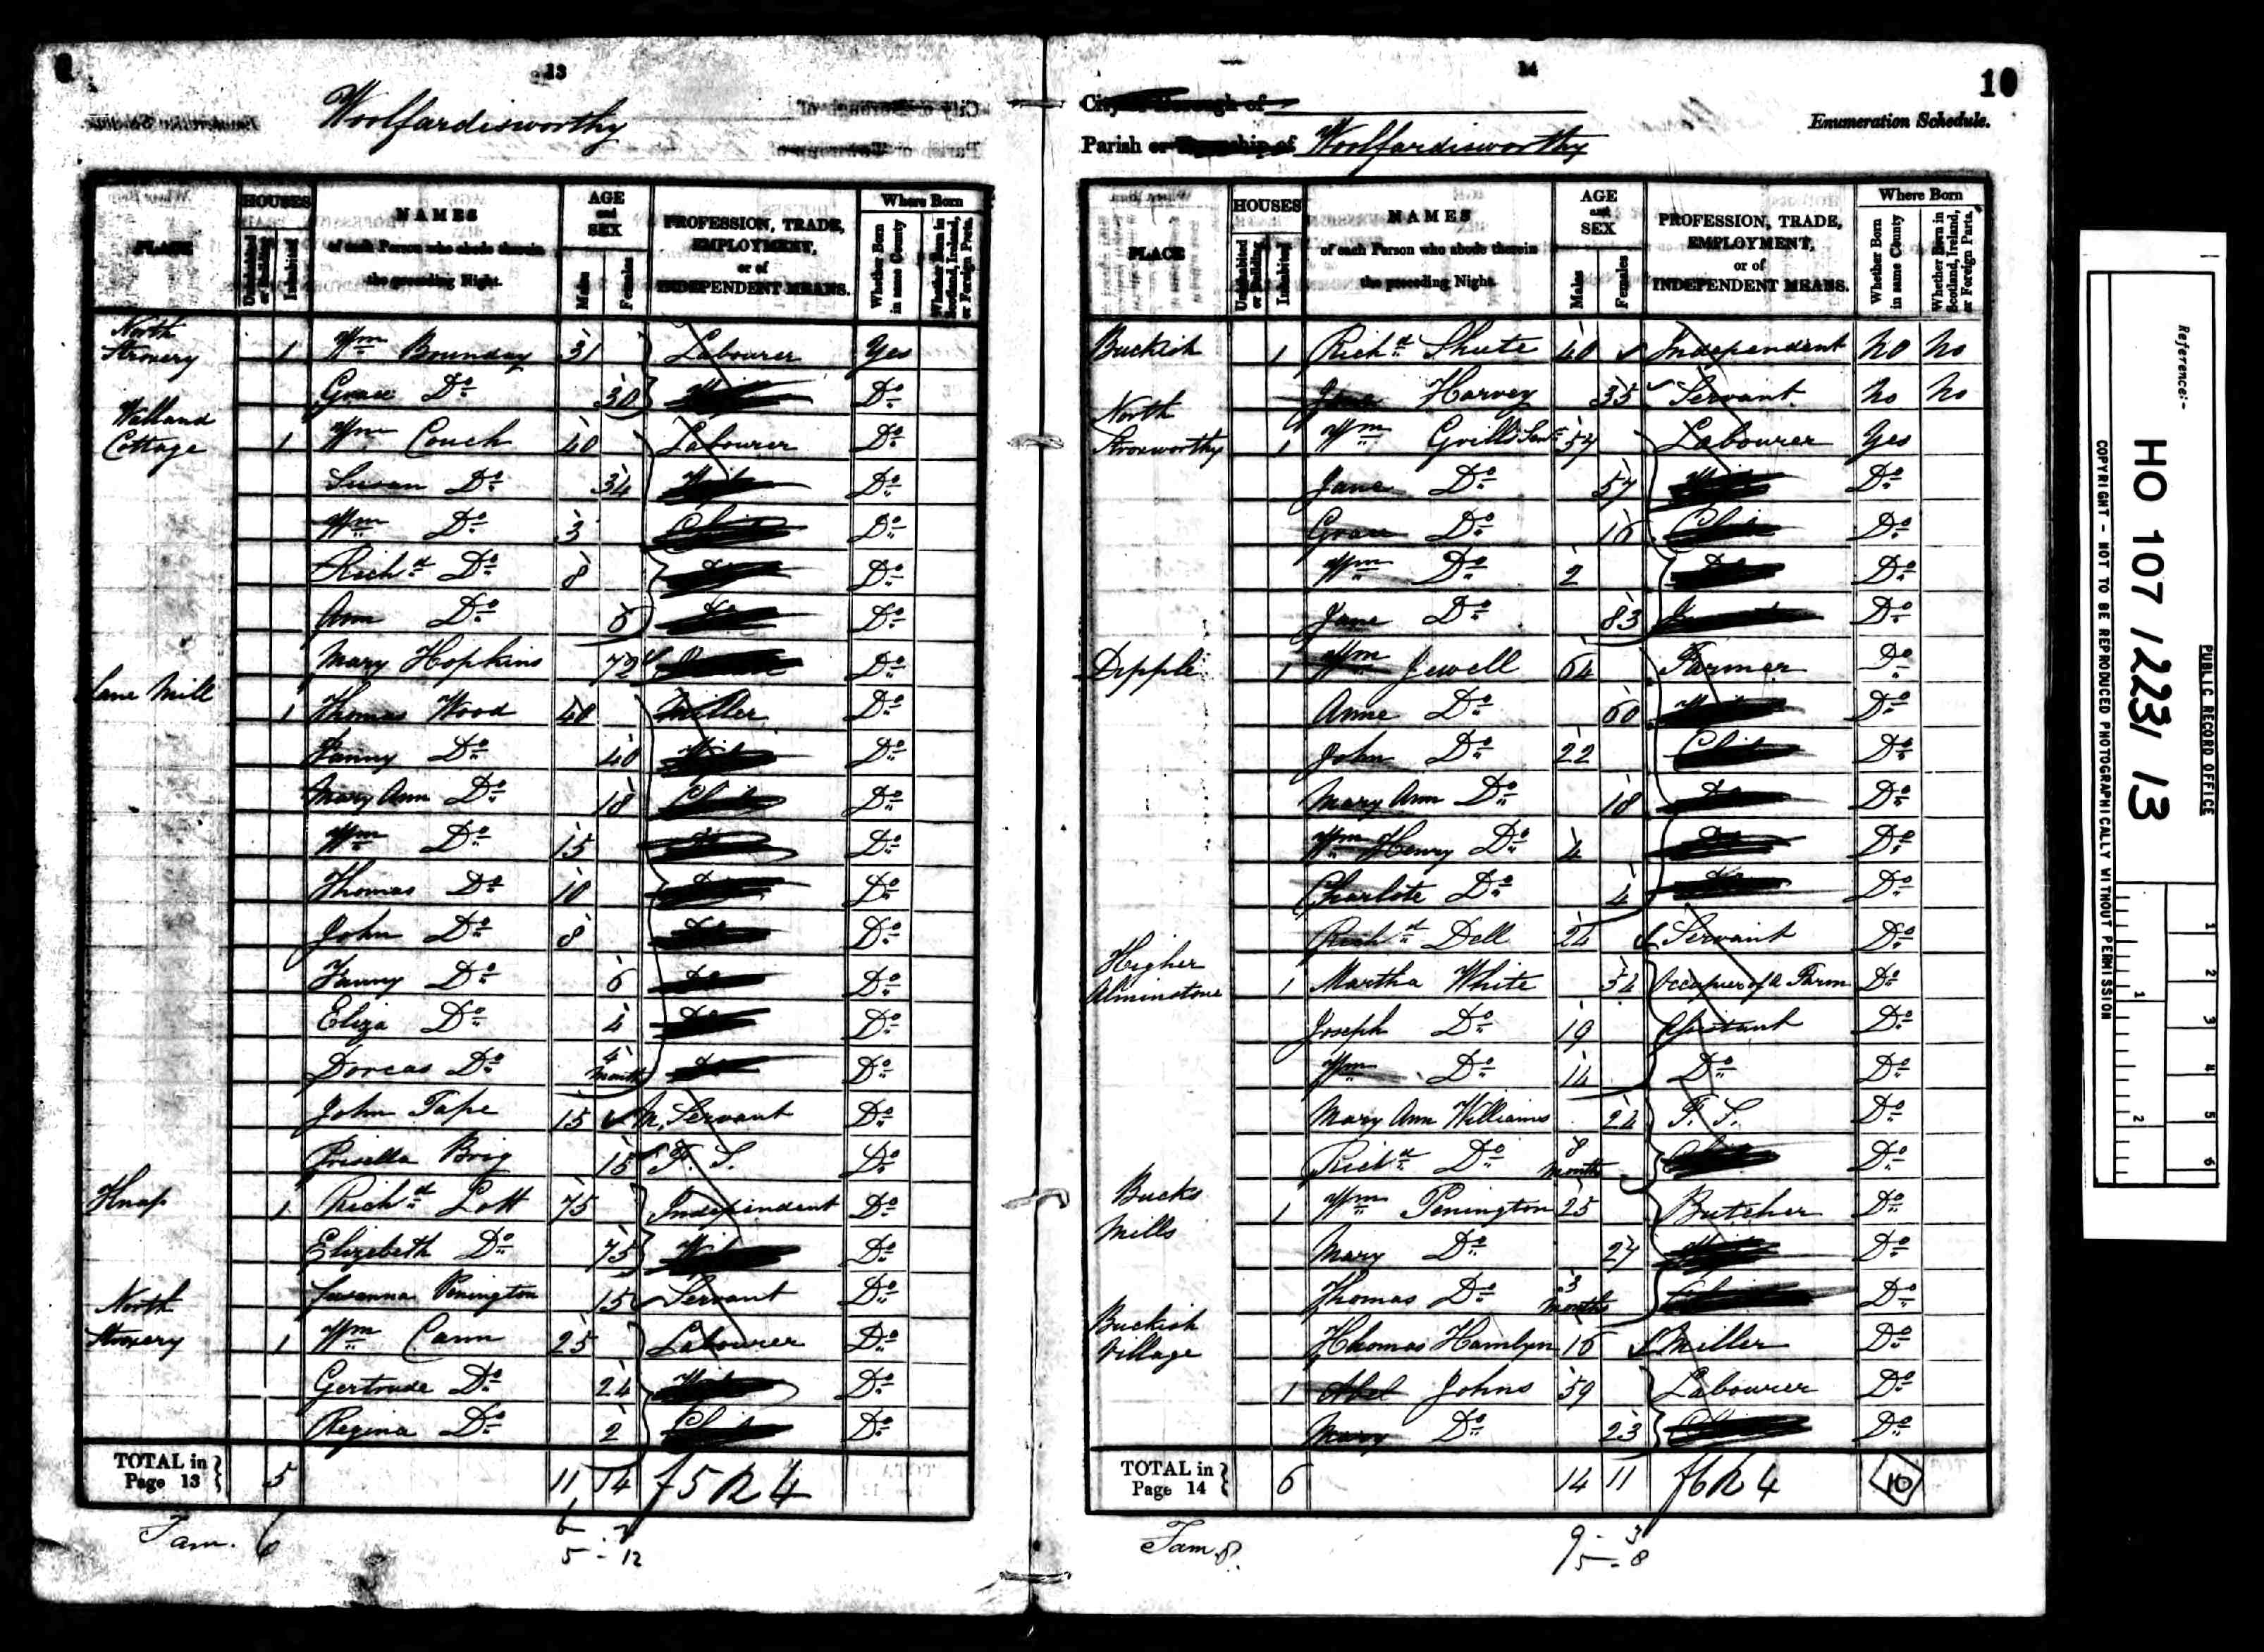 13
Woolfardisworthy
PLACE
HOUSES
Uninhabited or Building
Inhabited
NAMES of each Person who abode therein the preceding Night.
AGE and SEX
Males
Females
PROFESSION, TRADE, EMPLOYMENT, or of INDEPENDENT MEANS.
Where Born
Whether Born in same County
Whether Born in Scotland, Ireland, or Foreign Parts.
North 1 Wm Bounday 31 Labourer Yes
Grace Do 30 Do
Walland Cottage 1 Wm Couch 40 Labourer Do
Susan Do 34 Wife Do
Wm Do 3 Do
Richd Do 8 Do
Ann Do 6 Do
Mary Hopkins 72 Do
Lane Mill 1 Thomas Wood 40 Miller Do
Fanny Do 40 Wife Do
Mary Ann Do 18 Do
Wm Do 15 Do
Thomas Do 10 Do
John Do 8 Do
Fanny Do 6 Do
Eliza Do 4 Do
Dorcas Do 4 months Do
John Tape 15 M. Servant Do
Prisella Brig 15 F. S. Do
Knap 1 Richd Lott 75 Independent Do
Elizebeth Do 75 Do
Susanna Penington 15 Servant Do
North 1 Wm Cann 25 Labourer Do
Gertrude Do 24 Do
Regina Do 2 Do
TOTAL in Page 13 5 11 14 f5 R 4
Fam. 6
5 - 12
14
10
City or Borough of
Enumeration Schedule.
Parish or Township of Woolfardisworthy
PLACE
HOUSES
Uninhabited or Building
Inhabited
NAMES of each Person who abode therein the preceding Night.
AGE and SEX
Males
Females
PROFESSION, TRADE, EMPLOYMENT, or of INDEPENDENT MEANS.
Where Born
Whether Born in same County
Whether Born in Scotland, Ireland, or Foreign Parts.
Buckish 1 Richd Shute 40 Independent No No
Jane Harvey 35 Servant No No
North Stroxworthy 1 Wm Grills Senr 57 Labourer Yes
Jane Do 57 Do
Grace Do 16 Do
Wm Do 2 Do
Jane Do 83 Do
Dipple 1 Wm Jewell 64 Farmer Do
Anne Do 60 Do
John Do 22 Do
Mary Ann Do 18 Do
Wm Henry Do 4 Do
Charlote Do 4 Do
Richd Dell 24 Servant Do
Higher Alminstone 1 Martha White 54 Occupier of a Farm Do
Joseph Do 19 Assistant Do
Wm Do 14 Do Do
Mary Ann Williams 24 F. S. Do
Richd Do 8 months Do
Bucks Mills 1 Wm Penington 25 Butcher Do
Mary Do 27 Do
Thomas Do 3 months Do
Buckish Village Thomas Hamlyn 16 Miller Do
1 Abel Johns 59 Labourer Do
Mary Do 23 Do
TOTAL in Page 14 6 14 11 f6 R 4 10
Fam 8.
9 - 3
5 - 8
Reference:-
HO 107 / 223 / 13
PUBLIC RECORD OFFICE
COPYRIGHT - NOT TO BE REPRODUCED PHOTOGRAPHICALLY WITHOUT PERMISSION
1
2
1
2
3
4
5
6